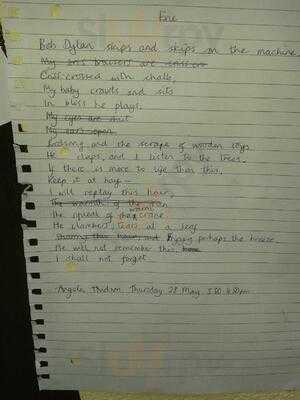 Ere
Bob Dylan skips and skips on the machine
My son's trousers are criss cro
Criss-crossed with chalk,
My baby crawls and sits
In bliss he plays.
My eyes are shut
My ears open
Birdsong and the scrape of wooden toys
He claps, and I listen to the trees.
If there is more to life than this,
Keep it at bay —
I will replay this hour,
The warmth of the sun
The spread of the crane
warmth
He clambers, tears at a leaf
this hour, and Enjoys perhaps the breeze.
He will not remember this,
I shall not forget
Angela Thursday 28 May, 3.30 - 4.30pm